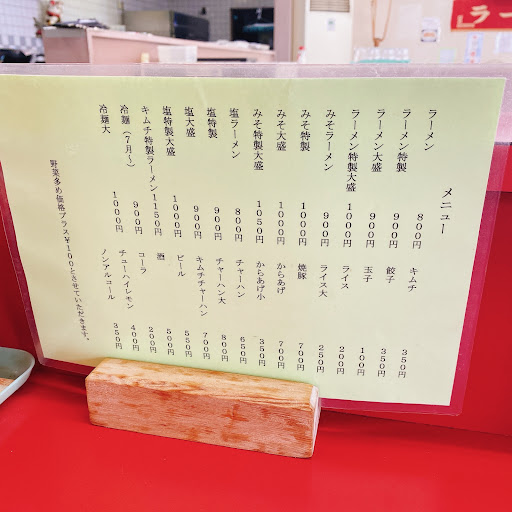 ラー
メニュー
ラーメン 800円
ラーメン特製 900円
ラーメン大盛 900円
ラーメン特製大盛 1000円
みそラーメン 900円
みそ特製 1000円
みそ大盛 1000円
みそ特製大盛 1050円
塩ラーメン 800円
塩特製 900円
塩大盛 900円
塩特製大盛 1000円
キムチ特製ラーメン 1150円
冷麺(7月〜) 900円
冷麺大 1000円
キムチ 350円
餃子 350円
玉子 100円
ライス 200円
ライス大 250円
焼豚 700円
からあげ 700円
からあげ小 350円
チャーハン 650円
チャーハン大 800円
キムチチャーハン 700円
ビール 550円
酒 500円
コーラ 200円
チューハイレモン 400円
ノンアルコール 350円
野菜多め価格プラス¥100とさせていただきます。